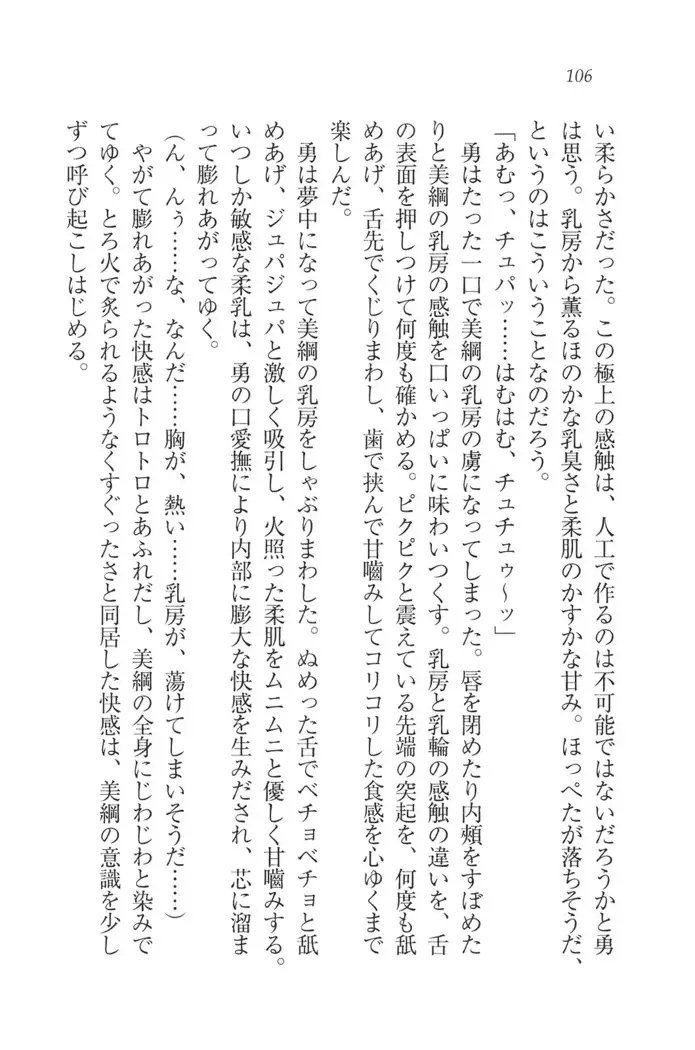 106
い柔らかさだった。この極上の感触は、人工で作るのは不可能ではないだろうかと勇
は思う。乳房から薫るほのかな乳臭さと柔肌のかすかな甘み。ほっぺたが落ちそうだ、
というのはこういうことなのだろう。
「あむっ、チュパッ……はむはむ、チュチュゥ～ッ」
勇はたった一口で美綱の乳房の虜になってしまった。唇を閉めたり内頰をすぼめた
りと美綱の乳房の感触を口いっぱいに味わいつくす。乳房と乳輪の感触の違いを、舌
の表面を押しつけて何度も確かめる。ピクピクと震えている先端の突起を、何度も舐
めあげ、舌先でくじりまわし、歯で挟んで甘嚙みしてコリコリした食感を心ゆくまで
楽しんだ。
勇は夢中になって美綱の乳房をしゃぶりまわした。ぬめった舌でベチョベチョと舐
めあげ、ジュパジュパと激しく吸引し、火照った柔肌をムニムニと優しく甘嚙みする。
いつしか敏感な柔乳は、勇の口愛撫により内部に膨大な快感を生みだされ、芯に溜ま
って膨れあがってゆく。
（ん、んぅ……な、なんだ……胸が、熱い……乳房が、蕩けてしまいそうだ……）
やがて膨れあがった快感はトロトロとあふれだし、美綱の全身にじわじわと染みで
てゆく。とろ火で炙られるようなくすぐったさと同居した快感は、美綱の意識を少し
ずつ呼び起こしはじめる。